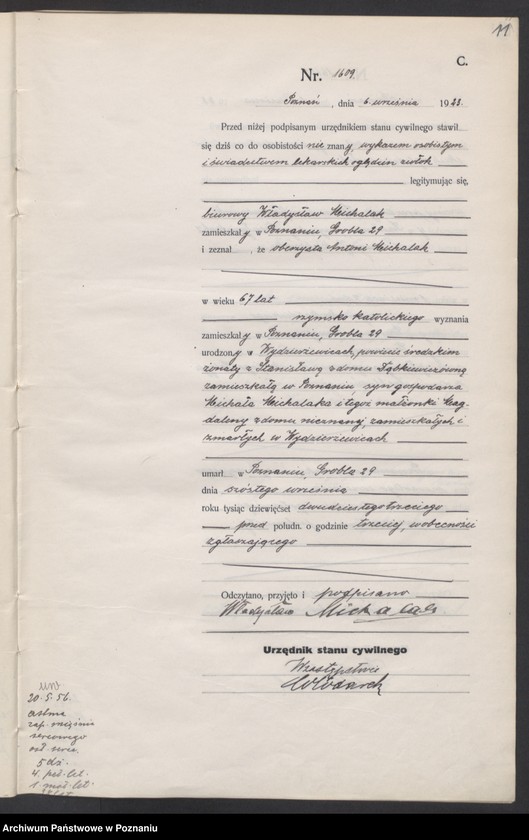 11
C.
Nr. 1609.
Poznań, dnia 6 września 1923.
Przed niżej podpisanym urzędnikiem stanu cywilnego stawił
się dziś co do osobistości nie znany, wykazem osobistym
i świadectwem lekarskich oględzin zwłok
legitymując się,
biurowy Władysław Michalak
zamieszkały w Poznaniu, Grobla 29
i zeznał, że oberzysta Antoni Michalak
w wieku 67 lat
rzymsko katolickiego wyznania
zamieszkały w Poznaniu, Grobla 29
urodzony w Wydzierzewicach, powiecie średzkim
żonaty z Stanisławą z domu Dąbkiewiczówną
zamieszkałą w Poznaniu, syn gospodarza
Michała Michalaka i tegoż małżonki Mag-
daleny z domu nieznanej, zamieszkałych i
zmarłych w Wydzierzewicach
umarł w Poznaniu, Grobla 29
dnia szóstego września
roku tysiąc dziewięćset dwudziestegotrzeciego
przed połudn. o godzinie trzeciej, w obecności
zgłaszającego
Odczytano, przyjęto i podpisano
Władysław Michalak
Urzędnik stanu cywilnego
W zastępstwie
20. 5. 56.
astma
5 dz.
4. peł. let.
1. mał. let.
Archiwum Państwowe w Poznaniu